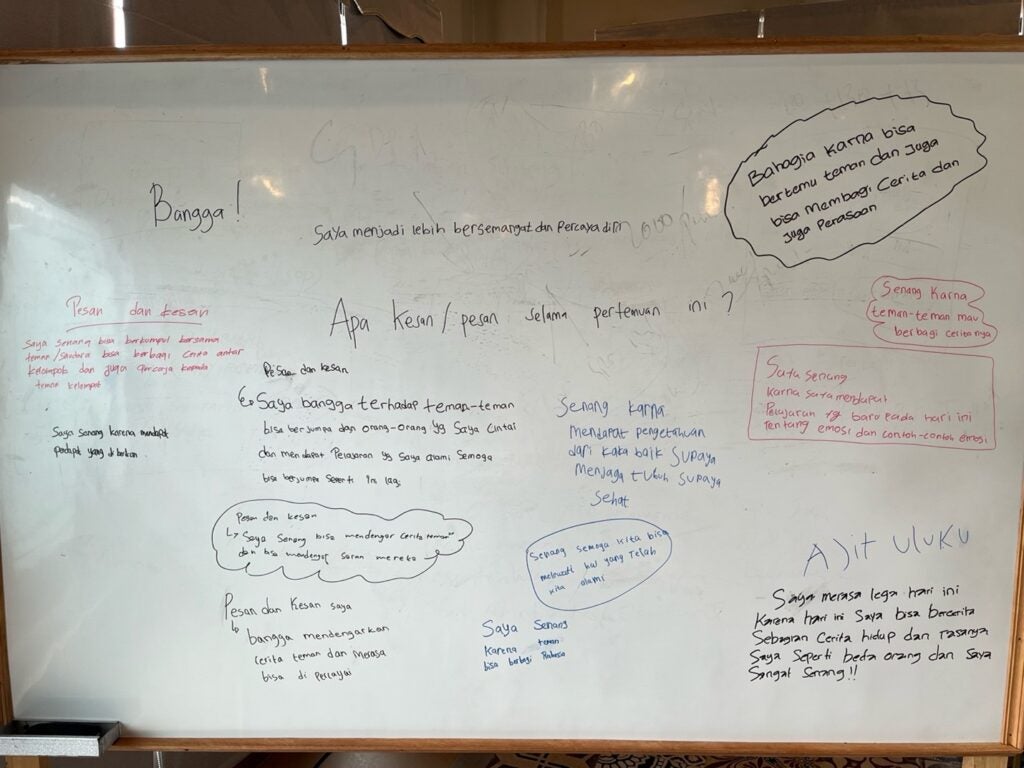 Bangga!
Saya menjadi lebih bersemangat dan Percaya diri
Bahagia karna bisa
bertemu teman dan Juga
bisa Membagi Cerita dan
Juga Perasaan
Apa kesan/pesan selama pertemuan ini?
Pesan dan kesan
Saya senang bisa berkumpul bersama
teman/saudara bisa berbagi cerita antar
kelompok dan juga percaya kepada
teman kelompok
Saya senang karena mendapat
yang di berikan
Pesan dan kesan
Saya bangga terhadap teman-teman
bisa berjumpa dan orang-orang yg Saya Cintai
dan mendapat Pelajaran yg saya alami Semoga
bisa berjumpa seperti ini lagi
Senang karna
mendapat pengetahuan
dari kaka baik Supaya
Menjaga tubuh Supaya
Sehat
Senang Karna
teman-teman mau
berbagi ceritanya
Saya senang
karna saya mendapat
Pelajaran yg baru pada hari ini
tentang emosi dan contoh-contoh emosi
Pesan dan kesan
↳ Saya Senang bisa mendengar cerita teman"
dan bisa mendengar saran mereka
Senang semoga kita bisa
melewati hal yang Telah
kita alami
Pesan dan Kesan saya
↳ bangga mendengarkan
cerita teman dan Merasa
bisa di percayai
Saya Senang
Karena teman
bisa berbagi
Ajit uluku
Saya merasa lega hari ini
Karena hari ini Saya bisa bercerita
Sebagian Cerita hidup dan rasanya
Saya Seperti beda orang dan Saya
Sangat Senang!!